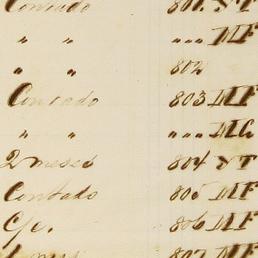 Contado 801. NT
" " " " " MF
" " 802
Contado 803 MF
" " " " " MG
2 meses 804 NT
Contado 805 MF
C/c. 806 MF
807 MF